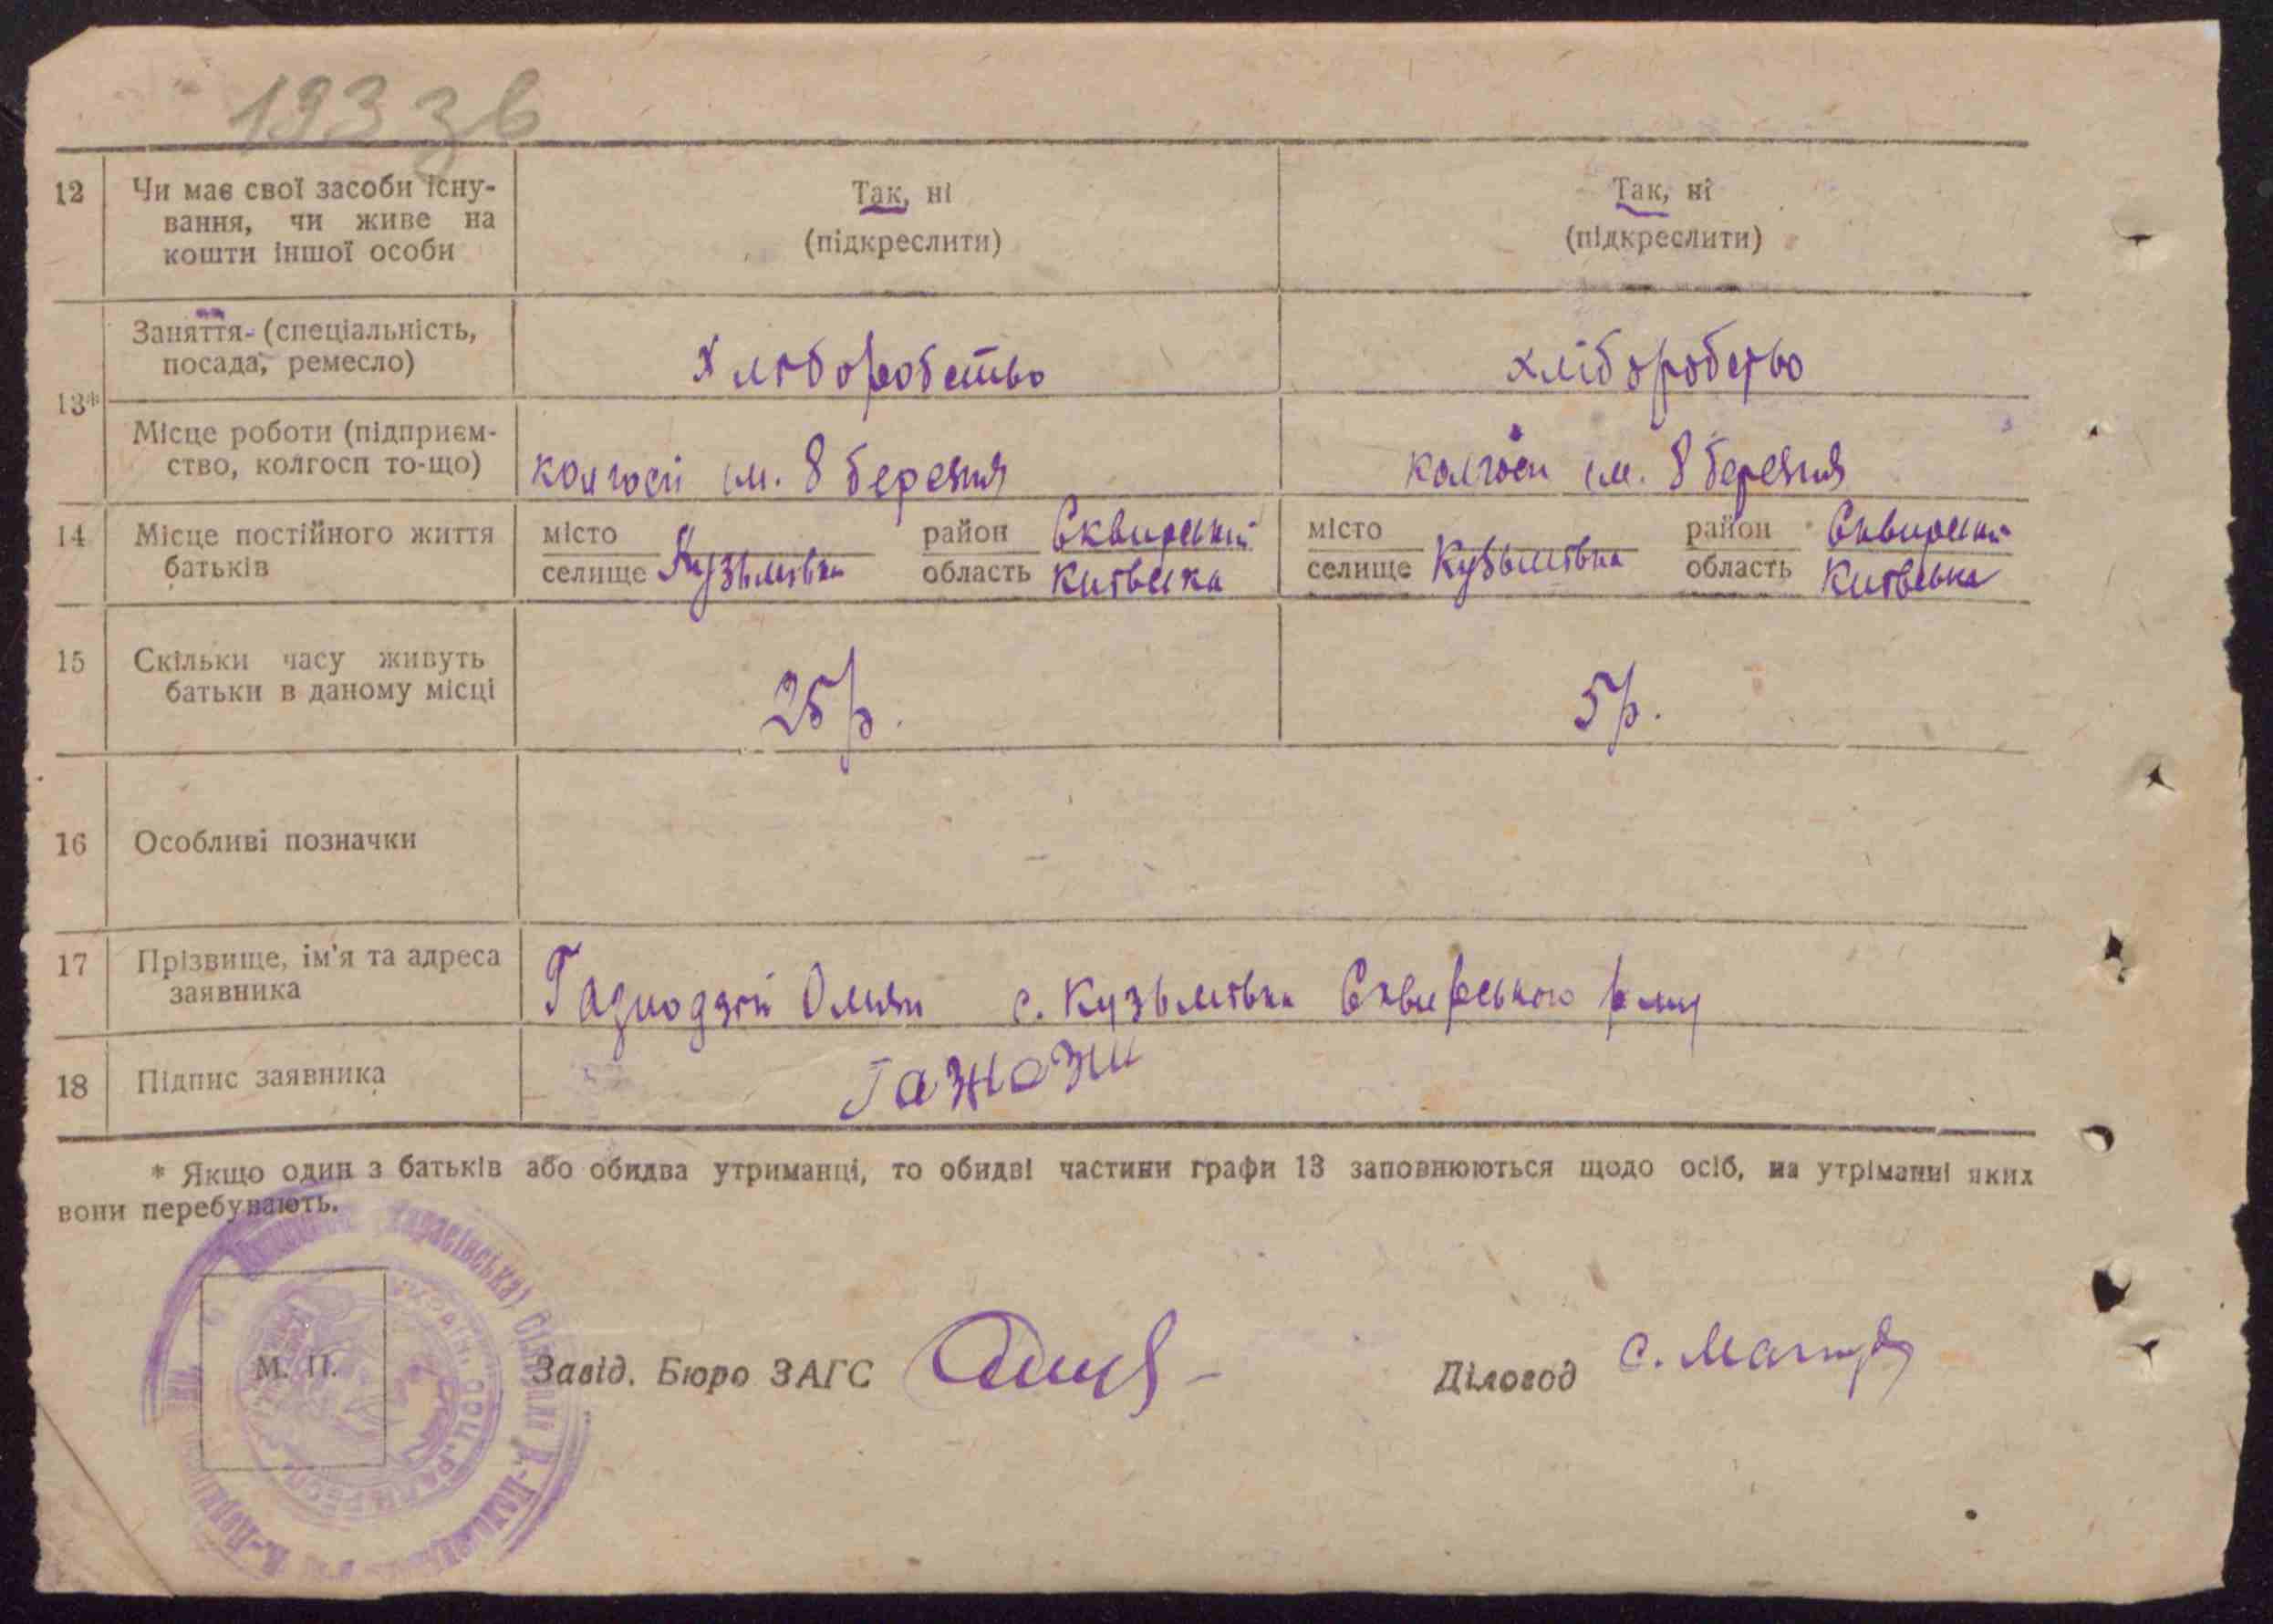 193 зв
12 Чи має свої засоби існу- Так, ні Так, ні
вання, чи живе на
кошти іншої особи (підкреслити) (підкреслити)
Заняття (спеціальність,
посада, ремесло) Хліборобство хліборобство
13*
Місце роботи (підприєм-
ство, колгосп то-що) колгосп ім. 8 березня колгосп ім. 8 березня
14 Місце постійного життя місто район Сквирський місто район Сквирський
батьків селище Кузьмівка область Київська селище Кузьмівка область Київська
15 Скільки часу живуть
батьки в даному місці 25 р. 5 р.
16 Особливі позначки
17 Прізвище, ім'я та адреса
заявника с. Кузьмівка Сквирського р-ну
18 Підпис заявника
* Якщо один з батьків або обидва утриманці, то обидві частини графи 13 заповнюються щодо осіб, на утріманні яких
вони перебувають.
М. П. Завід. Бюро ЗАГС Діловод С.